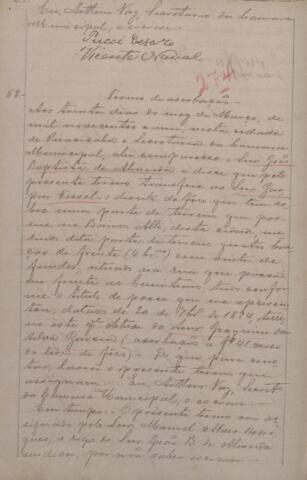 Eu, Arthur Vaz, Secretario da Camara
Municipal, o escrevi.
Pucci Cesare
Vicente
274
58-
Termo de averbação.-
Aos trinta dias do mez de Março, de
mil novecentos e um, nesta cidade
de e Secretaria da Camara
Municipal, ahi compareceu o Snr. João
Baptista de Almeida e disse que pelo
presente termo transfere ao Snr.
o direito de fôro que tem so-
bre uma parte de terreno que pos-
sue no Bairro Alto, desta cidade, me-
dindo dita parte de terreno quatro bra-
ças de frente (4 br.as) com vinte de
fundos, situado na rua que passa
em frente ao Cemiterio, tudo confor-
me o titulo de posse que me apresen-
tou, datado de 20 de 7br.o de 1894, terre-
no este q' obteve do Snr. Joaquim da
Silva (averbação nº 41 verso
do livro de fôro). De que para cons-
tar, lavrei o presente termo que
assignaram. Eu, Arthur Vaz, Secret.o
da Camara Municipal, o escrevi.
Em tempo: O presente termo vai as-
signado pelo Snr. Manoel Alves Rodri-
gues, a rogo do Snr. João B. de Almeida
por não saber escrever.